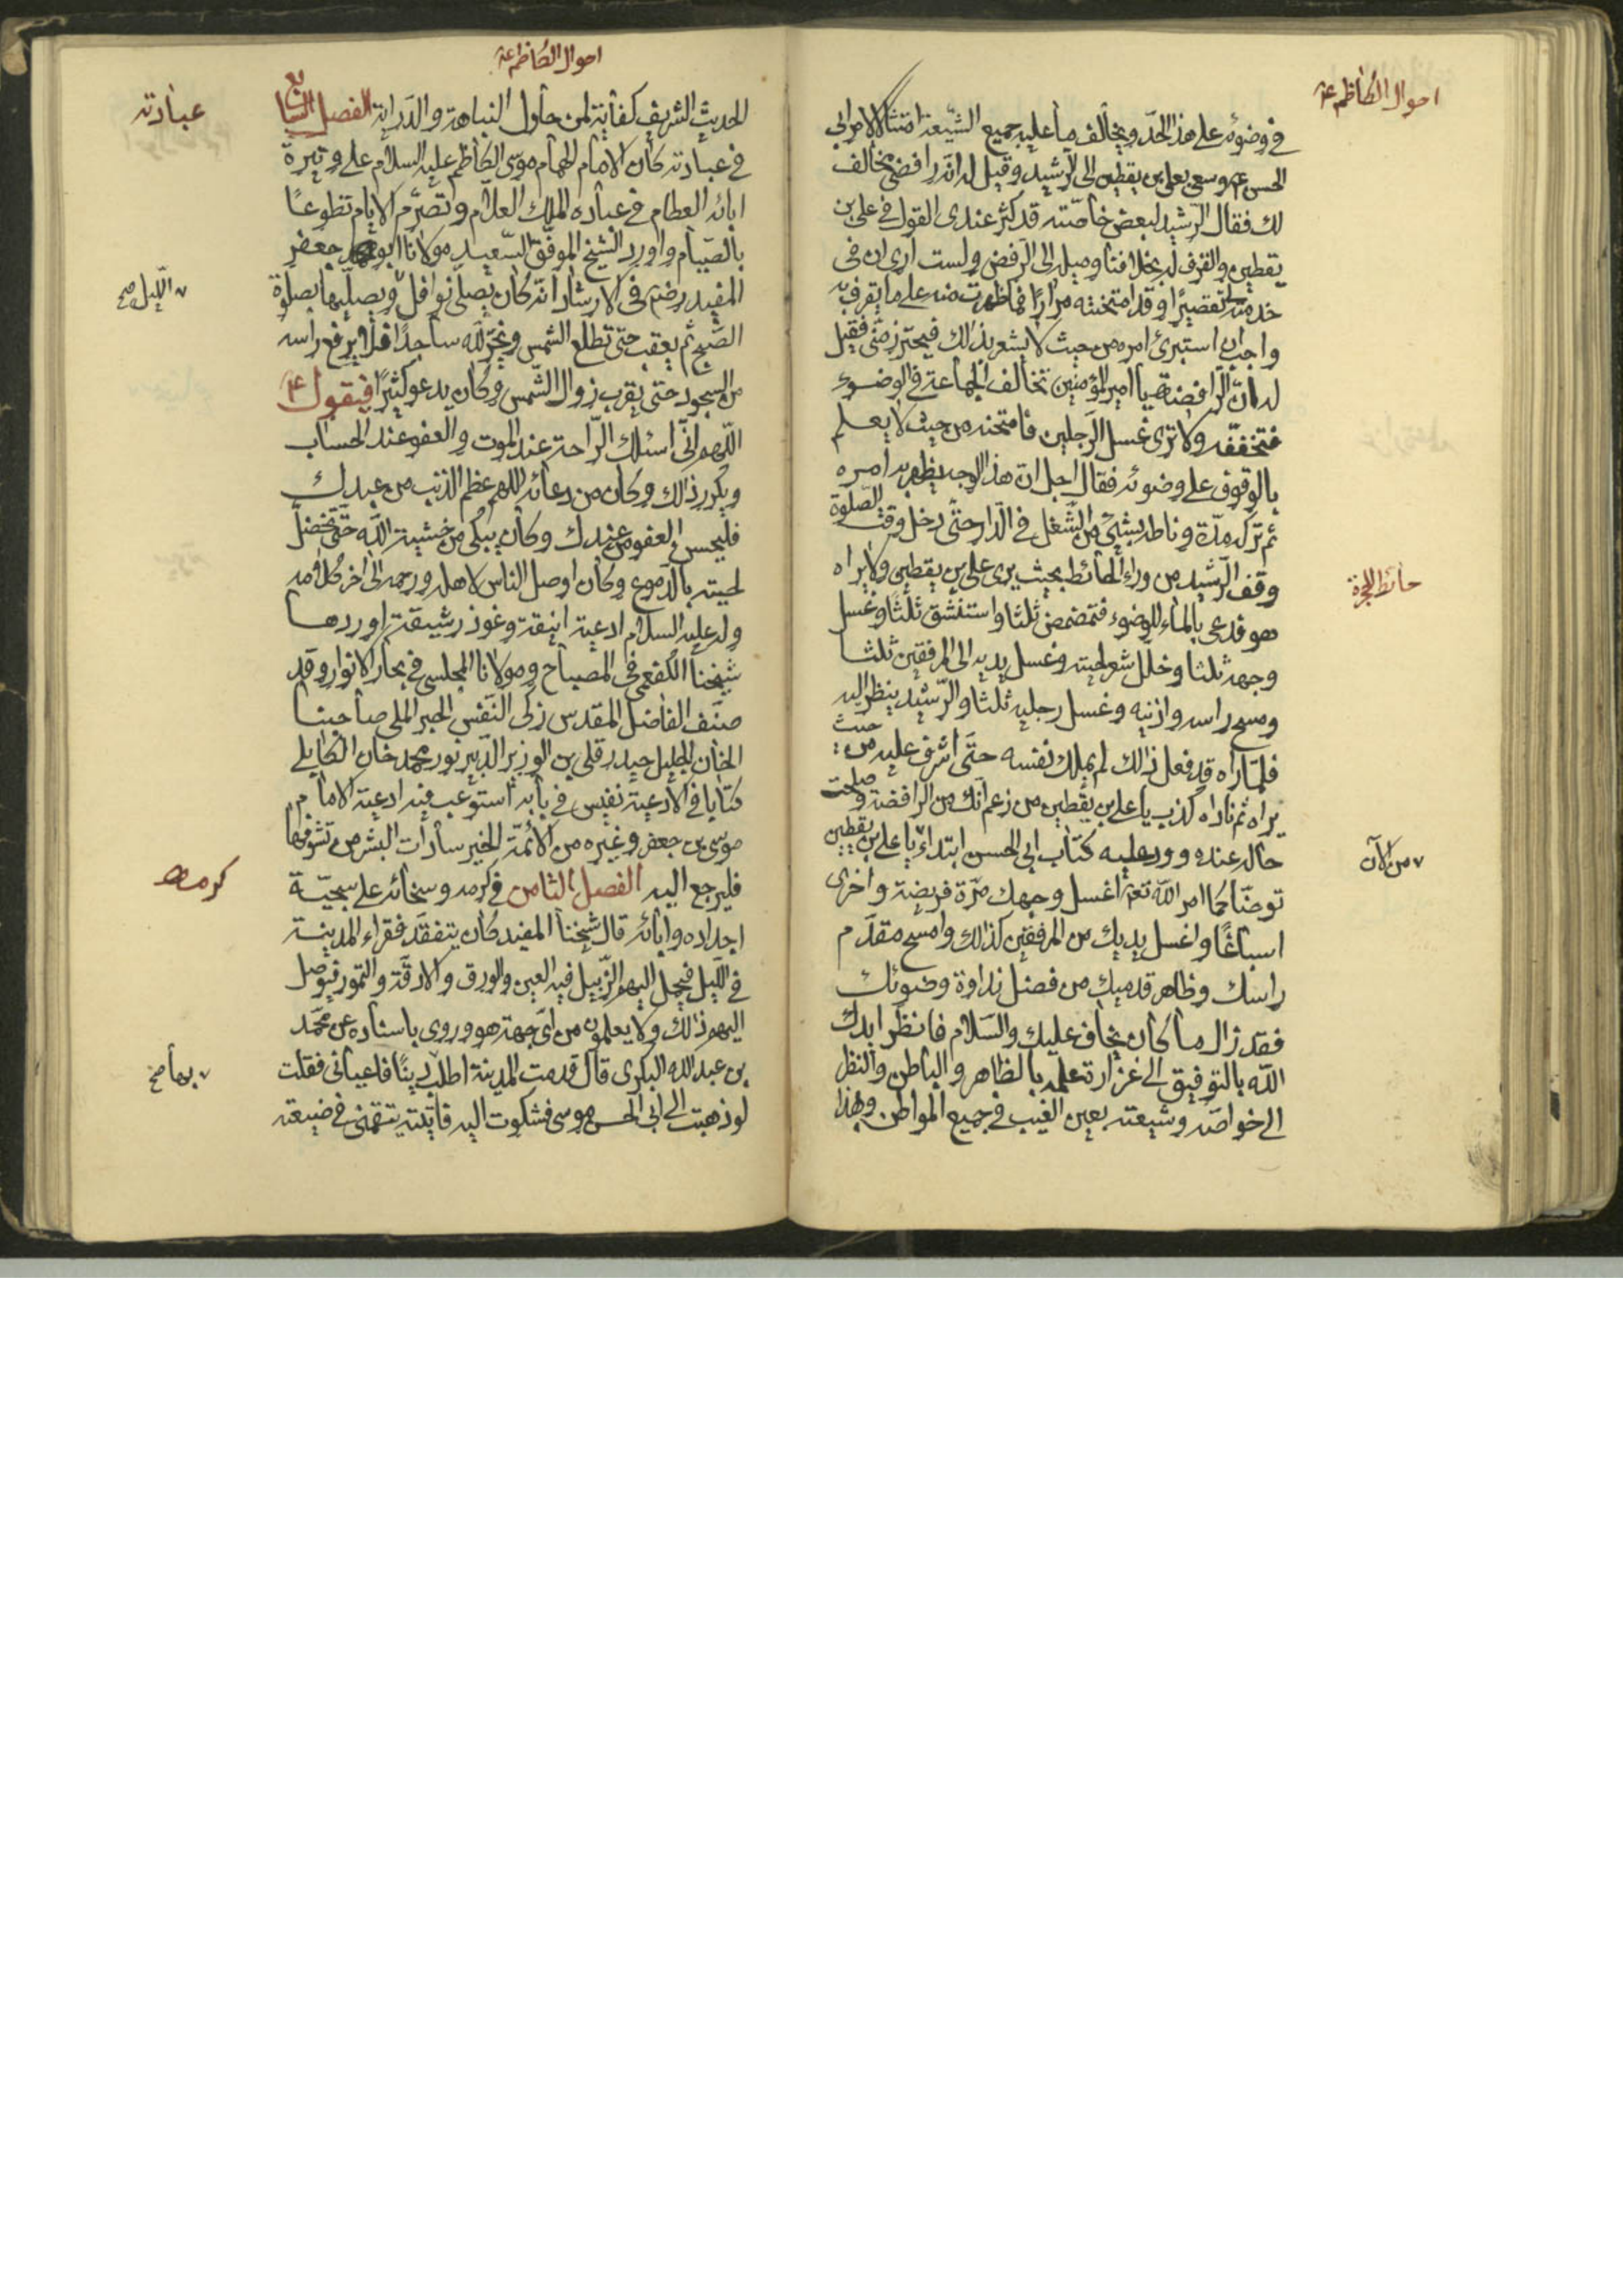 احوال الكاظم ع
في وضوئه على هذا الحدّ ويخالف ما عليه جميع الشّيعة امتثالا لامر ابي
الحسن ع وسعى بعلي بن يقطين الى الرّشيد وقيل له انّه رافضي مخالف
لك فقال الرّشيد لبعض خاصّته قد كثر عندي القول في علي بن
يقطين والقرف له بخلافنا وميله الى الرّفض ولست ارى ان في
خدمته لي تقصيرًا وقد امتحنته مرارًا فما ظهرت منه على ما يقرف به
واحب ان استبرئ امره من حيث لا يشعر بذلك فيحترز منّي فقيل
له انّ الرّافضة يا امير المؤمنين تخالف الجماعة في الوضوء
فتخففه ولا ترى غسل الرّجلين فامتحنه من حيث لا يعلم
بالوقوف على وضوئه فقال اجل انّ هذا الوجه يظهر به امره
ثم تركه مدّة وناطه بشيئ من الشّغل في الدّار حتّى دخل وقت الصّلوة
وقف الرّشيد من وراء الحائط بحيث يرى علي بن يقطين ولا يراه
حائط الحجرة
هو فدعى بالماء للوضوء فتمضمض ثلثا واستنشق ثلثا وغسل
وجهه ثلثا وخلل شعر لحيته وغسل يديه الى المرفقين ثلثا
ومسح راسه واذنيه وغسل رجليه ثلثا والرّشيد ينظر اليه
فلمّا راه قد فعل ذلك لم يملك نفسه حتّى اشرف عليه من حيث
يراه ثم ناداه كذب يا علي بن يقطين من زعم انّك من الرافضة وصلحت
حاله عنده وورد عليه كتاب ابي الحسن ابتداء يا علي بن يقطين
من الآن
توضّا كما امر اللّه تع اغسل وجهك مرّة فريضة واخرى
اسباغًا واغسل يديك من المرفقين كذلك وامسح مقدّم
راسك وظاهر قدميك من فضل نداوة وضوئك
فقد زال ما كان يخاف عليك والسّلام فانظر ايدك
اللّه بالتوفيق الى غزارة علمه بالظاهر والباطن والنظر
الى خواصّه وشيعته بعين الغيب في جميع المواطن وبهذا
احوال الكاظم ع
الحديث الشريف كفاية لمن حاول النباهة والدّراية الفصل السابع
عبادته
في عبادته كان الامام الهمام موسى الكاظم عليه السلام على وتيرة
ابائه العظام في عبادة الملك العلام وتصرّم الايام تطوعًا
بالصّيام واورد الشيخ الموفّق السّعيد مولانا ابو جعفر
المفيد رض في الارشاد انه كان يصلّي نوافل ويصلّيها بصلوة
اللّيل صح
الصّبح ثم يعقب حتّى تطلع الشمس ويخرّ للّه ساجدًا فلا يرفع راسه
من السجود حتى يقرب زوال الشّمس وكان يدعو كثيرًا فيقول
اللّهم انّي اسئلك الرّاحة عند الموت والعفو عند الحساب
ويكرر ذلك وكان من دعائه اللهم عظم الذنب من عبدك
فليحسن العفو من عندك وكان يبكي من خشية اللّه حتّى تخضل
لحيته بالدّموع وكان اوصل الناس لاهله ورحمه الى اخر كلامه
وله عليه السلام ادعية انيقة وعوذ رشيقة اوردها
شيخنا الكفعمي في المصباح ومولانا المجلسي في بحار الانوار وقد
صنّف الفاضل المقدس زكى النّفس الحبر الملي صاحبنا
الخان الجليل حيدر قلي بن الوزير الدّبير نور محمد خان الكابلي
كتابا في الادعية نفيس في بابه استوعب فيه ادعية الامام
موسى بن جعفر وغيره من الائمّة الخير سادات البشر من تشوفها
فليرجع اليه الفصل الثامن في كرمه وسخائه على سجيّة
كرمه
اجداده وابائه قال شيخنا المفيد كان يتفقّد فقراء المدينة
في اللّيل فيحمل اليهم الزّبيل فيه العين والورق والادقّة والتمور فيوصل
اليهم ذلك ولا يعلمون من اى جهة هو وروى باسناده عن محمّد
بن عبد اللّه البكرى قال قدمت المدينة اطلب دينًا فاعياني فقلت
بها صح
لو ذهبت الى ابي الحسن موسى فشكوت اليه فاتيته بنقمى في ضيعته